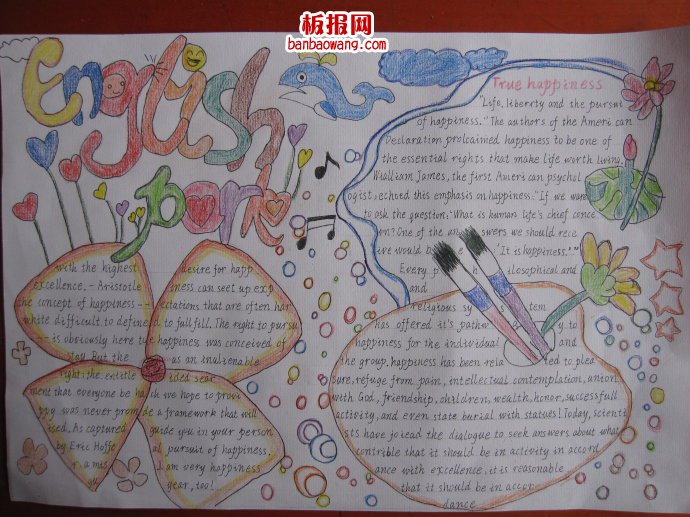 板报网
banbaowang.com
English
park
True happiness
"Life, liberty and the pursuit
of happiness." The authors of the Ameri can
Declaration prolcaimed happiness to be one of
the essential rights that make life worth living.
William James, the first American psychol
ogist, echoed this emphasis on happiness. "If we were
to ask the question: "What is human life's chief conce
rn? One of the answers we should rece
ive would be "It is happiness."
Every philosophical and
and
religious sy tem
has offered it's pathw y to
happiness for the individual and
the group. happiness has been rela ted to plea
sure, refuge from pain, intellectual contemplation, union
with God, friendship, children, wealth, honor, successfull
activity, and even state burial with statues! Today, scienti
sts have joiead the dialogue to seek answers about what
contrible that it should be in activity in accord
ance with excellence, it is reasonable
that it should be in accor
dance
with the highest
excellence. - Aristotle
the concept of happiness -
white difficult to define
- is obviously here to
stay. But the
right: the entitle
ment that everyone be ha
ppy was never prom
ised. As captured
by Eric Hoffe
r, a mis
gu
desire for happ
iness can seet up exp
ectations that are often har
d to fallfill. The right to pursu
happiness was conceived of
as an inulienable
ided sear
ch we hope to provi
de a framework that will
guide you in your person
al pursuit of happiness.
I am very happiness
year, too!